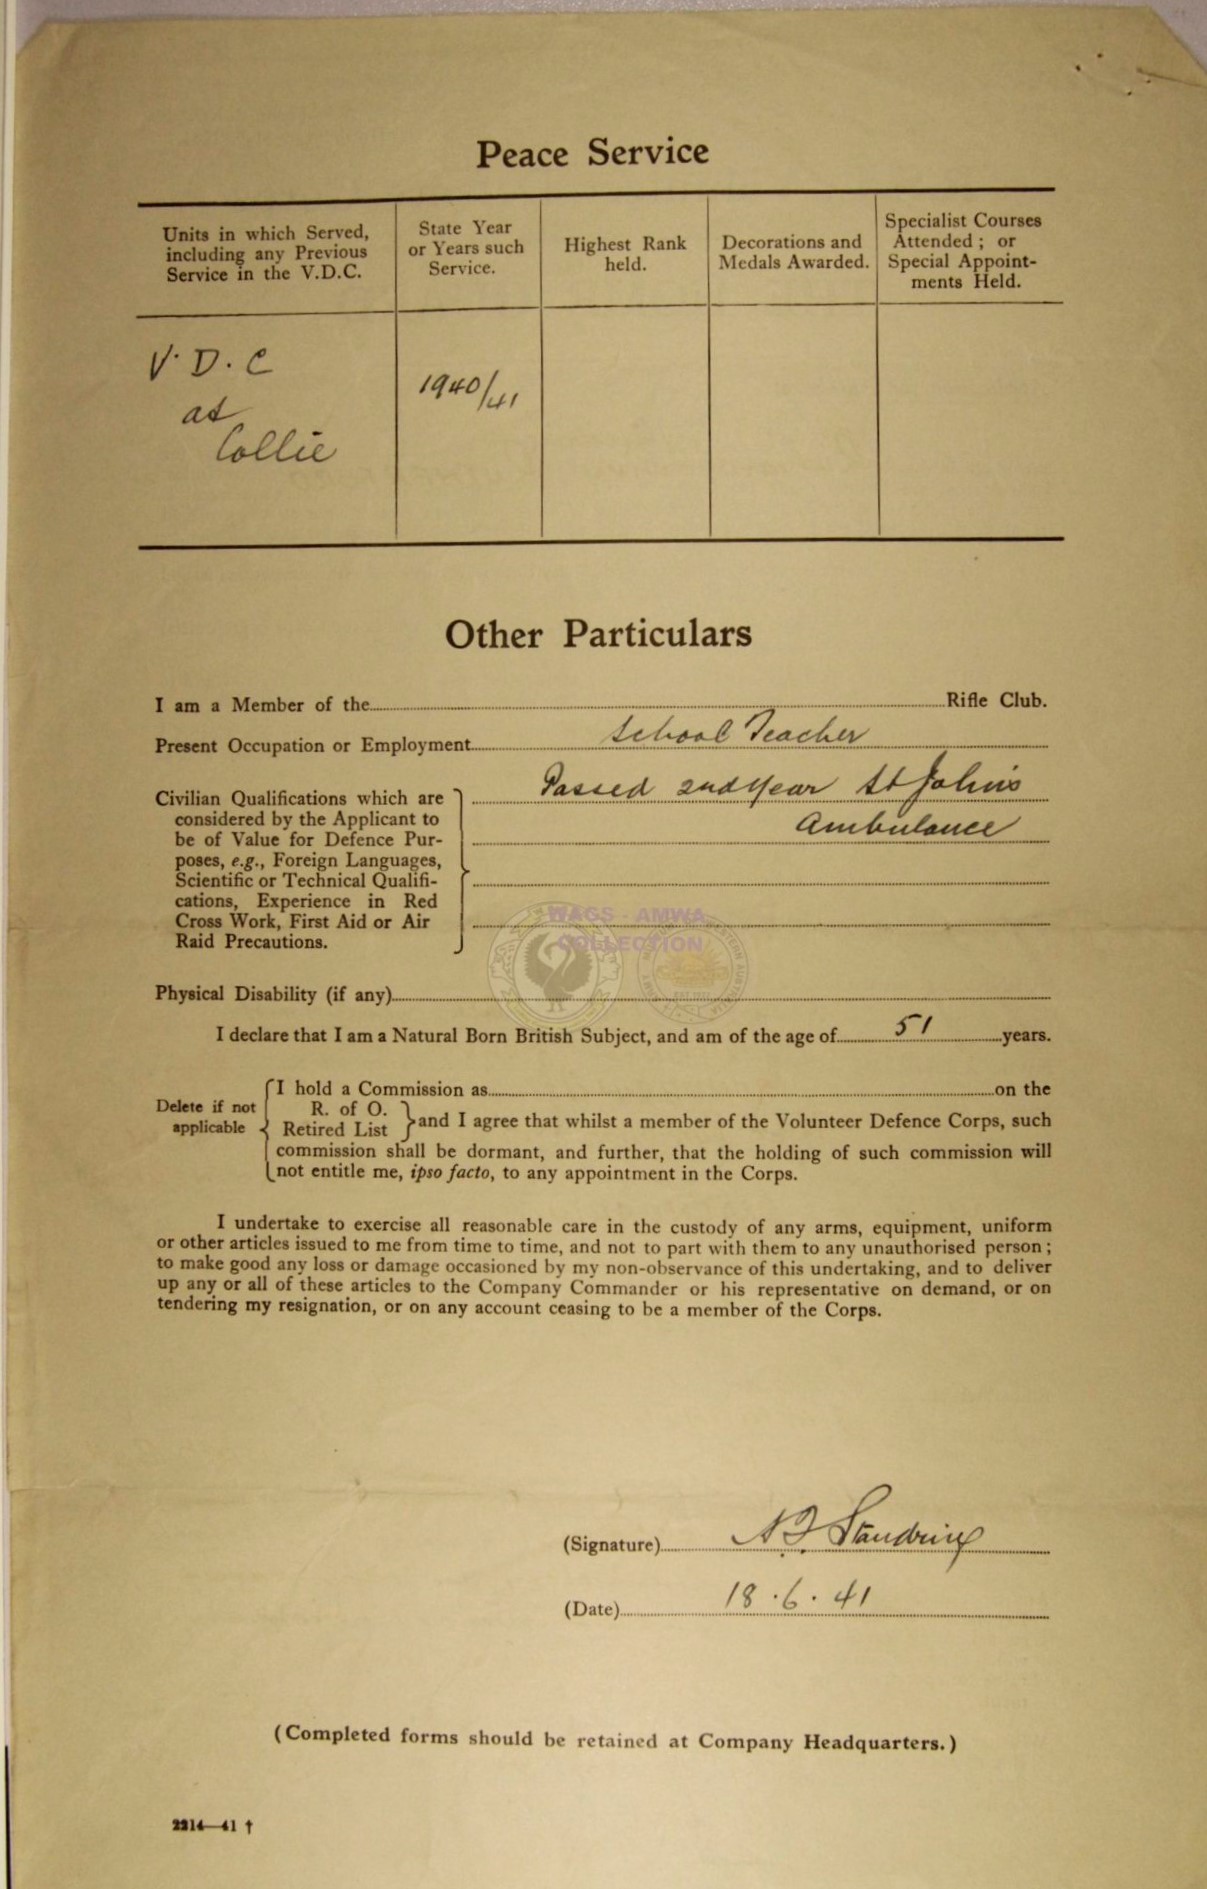 Peace Service
Units in which Served,
including any Previous
Service in the V.D.C.
State Year
or Years such
Service.
Highest Rank
held.
Decorations and
Medals Awarded.
Specialist Courses
Attended ; or
Special Appoint-
ments Held.
V. D. C
at
Collie
1940/41
Other Particulars
I am a Member of the Rifle Club.
Present Occupation or Employment School Teacher
Civilian Qualifications which are Passed 2nd Year St John's
considered by the Applicant to Ambulance
be of Value for Defence Pur-
poses, e.g., Foreign Languages,
Scientific or Technical Qualifi-
cations, Experience in Red
Cross Work, First Aid or Air
Raid Precautions.
WAGS - AMWA
COLLECTION
Physical Disability (if any)
I declare that I am a Natural Born British Subject, and am of the age of 51 years.
Delete if not
applicable
I hold a Commission as on the
R. of O.
Retired List
and I agree that whilst a member of the Volunteer Defence Corps, such
commission shall be dormant, and further, that the holding of such commission will
not entitle me, ipso facto, to any appointment in the Corps.
I undertake to exercise all reasonable care in the custody of any arms, equipment, uniform
or other articles issued to me from time to time, and not to part with them to any unauthorised person ;
to make good any loss or damage occasioned by my non-observance of this undertaking, and to deliver
up any or all of these articles to the Company Commander or his representative on demand, or on
tendering my resignation, or on any account ceasing to be a member of the Corps.
(Signature) Standring
(Date) 18.6.41
(Completed forms should be retained at Company Headquarters.)
2214—41 †